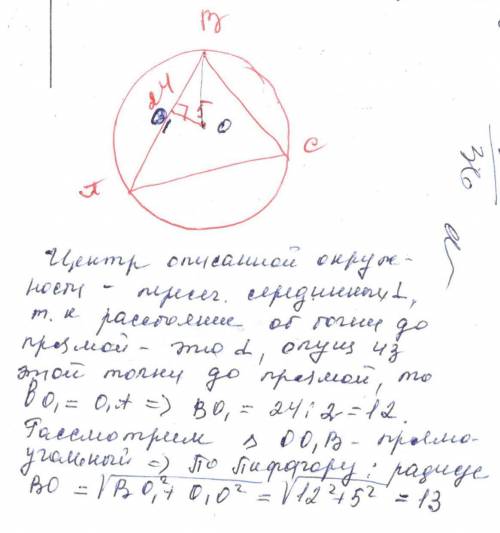 В
24
5
O₁
O
С
А
36
Центр описанной окруж-
ности - пересеч. серединных ⊥,
т.к расстояние от точки до
прямой - это ⊥, опущ из
этой точки до прямой, то
BO₁ = O₁A => BO₁ = 24:2=12.
Рассмотрим △ OO₁B - прямо-
угольный => По Пифагору: радиус
BO = √BO₁²+O₁O² = √12²+5² = 13